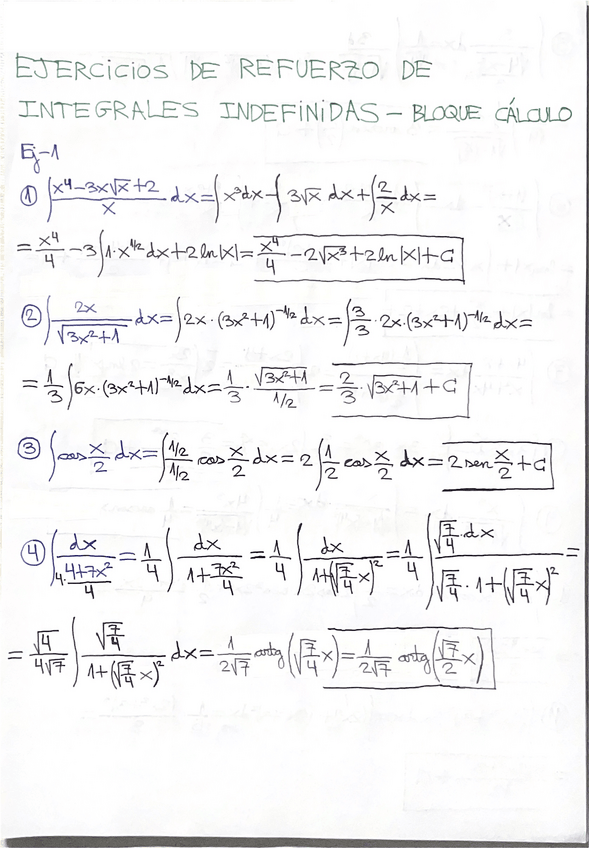 EJERCICIOS DE REFUERZO DE
INTEGRALES INDEFINIDAS – BLOQUE CÁLCULO
Ej-1
① ∫ (x⁴-3x√x+2)/x dx = ∫x³dx - ∫3√x dx + ∫2/x dx =
= x⁴/4 - 3∫1·x^(1/2) dx + 2ln|x| = x⁴/4 - 2√x³ + 2ln|x| + C
② ∫ 2x/√(3x²+1) dx = ∫2x·(3x²+1)^(-1/2) dx = ∫3/3·2x·(3x²+1)^(-1/2) dx =
= 1/3 ∫6x·(3x²+1)^(-1/2) dx = 1/3 · √(3x²+1)/(1/2) = 2/3·√(3x²+1) + C
③ ∫cos x/2 dx = ∫(1/2)/(1/2) cos x/2 dx = 2∫1/2 cos x/2 dx = 2 sen x/2 + C
④ ∫ dx/(4·(4+7x²)/4) = 1/4 ∫ dx/(1+7x²/4) = 1/4 ∫ dx/(1+(√(7/4) x)²) = 1/4 ∫ (√(7/4)·dx)/(√(7/4)·1+(√(7/4) x)²) =
= √4/(4√7) ∫ √(7/4)/(1+(√(7/4) x)²) dx = 1/(2√7) artg(√(7/4) x) = 1/(2√7) artg(√7/2 x)